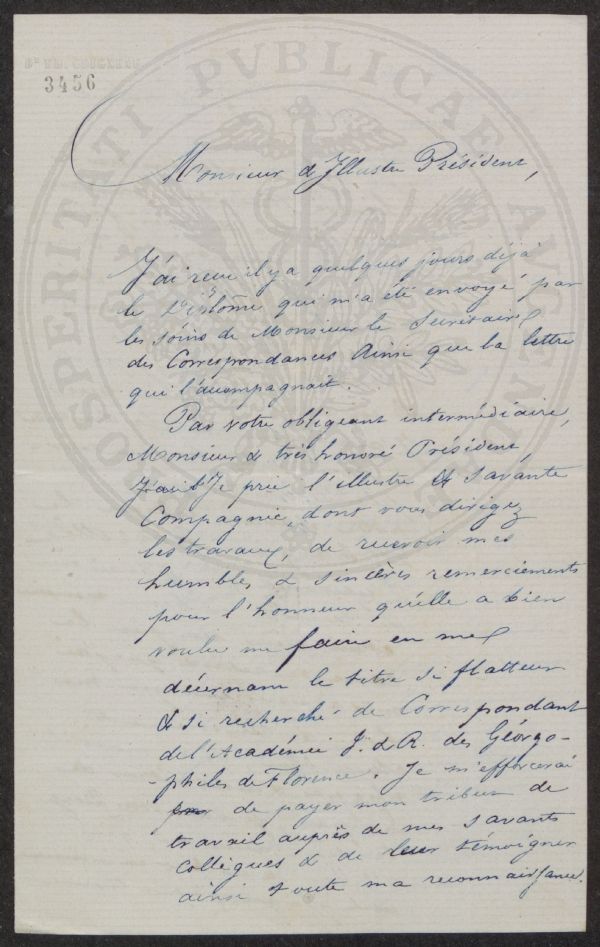 3456
Monsieur & Illustre Président,
J'ai reçu il y a quelques jours déjà
le Diplôme qui m'a été envoyé par
les soins de Monsieur le Secrétaire
des Correspondances ainsi que la lettre
qui l'accompagnait.
Par votre obligeant intermédiaire,
Monsieur & très honoré Président,
Je prie l'illustre & Savante
Compagnie, dont vous dirigez
les travaux, de recevoir mes
humbles & sincères remerciements
pour l'honneur qu'elle a bien
voulu me faire en me
décernant le titre si flatteur
& si recherché de Correspondant
de l'Académie J. & R. des Géorgo-
-philes de Florence. Je m'efforcerai
de payer mon tribut de
travail auprès de mes savants
Collègues & de leur témoigner
ainsi toute ma reconnaissance.